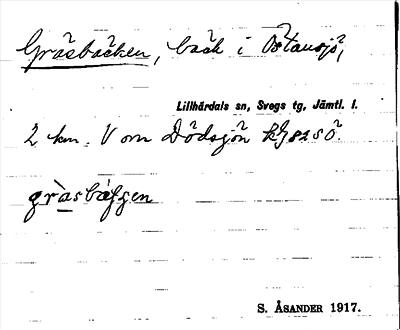 Gråsbäcken, bäck i Östansjö,
Lillhärdals sn, Svegs tg, Jämtl. l.
2 km. V om Dödsjön
S. ÅSANDER 1917.